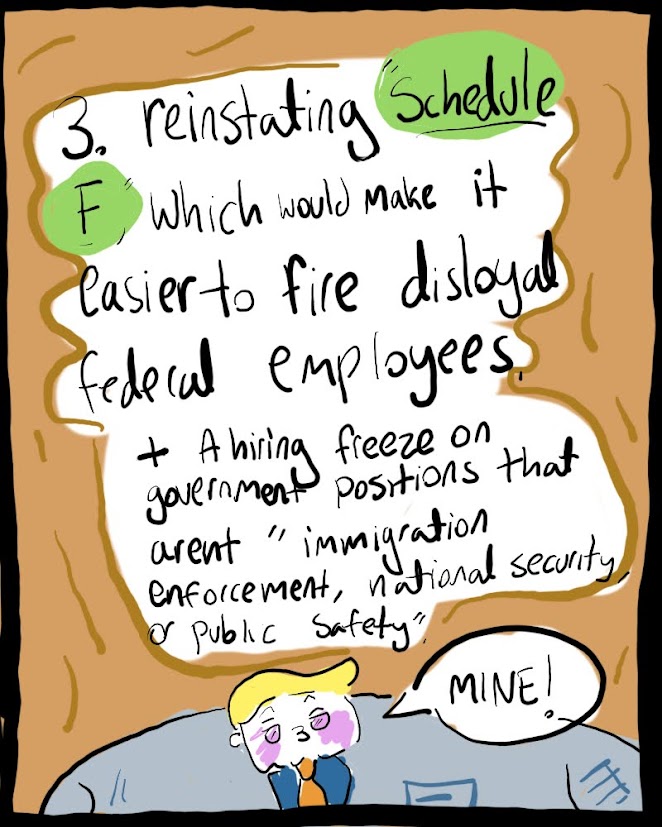 3. reinstating "Schedule
F" which would make it
easier to fire disloyal
federal employees.
+ A hiring freeze on
government positions that
arent "immigration
enforcement, national security
or public safety".
MINE!